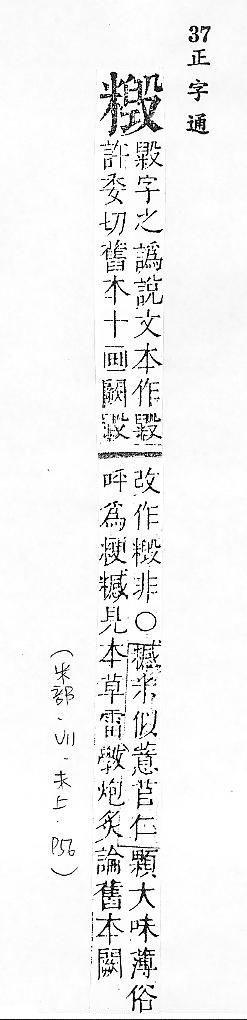 37 正字通
毇字之譌說文本作毇
許委切舊本十画闕毇
改作 非○𥽦米似薏苡仁顆大味薄俗
呼為粳𥽦見本草雷斆炮炙論舊本闕
(米部·VII·未上·P56)